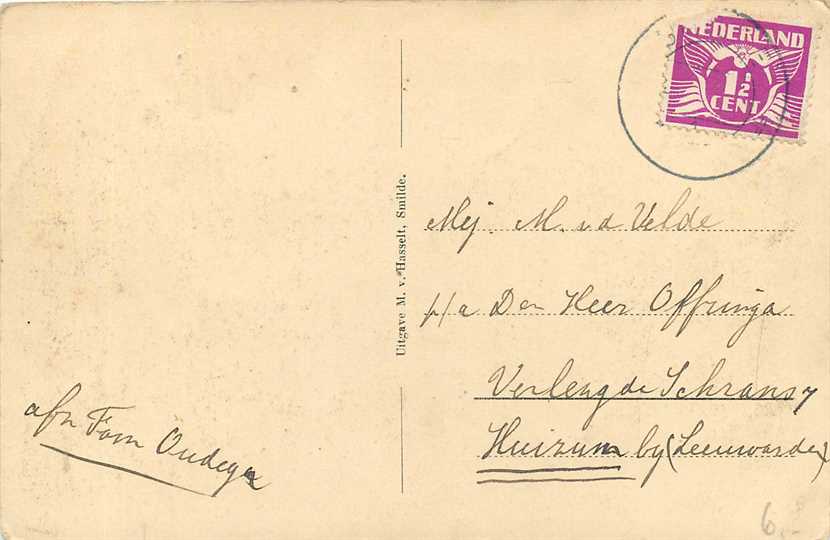 NEDERLAND
1½
CENT
Mej. M. v d Velde
p/a Den Heer Offringa
Verlengde Schrans 7
Huizum by (Leeuwarden)
Uitgave M. v. Hasselt, Smilde.
afz Fam Oudega
6,-